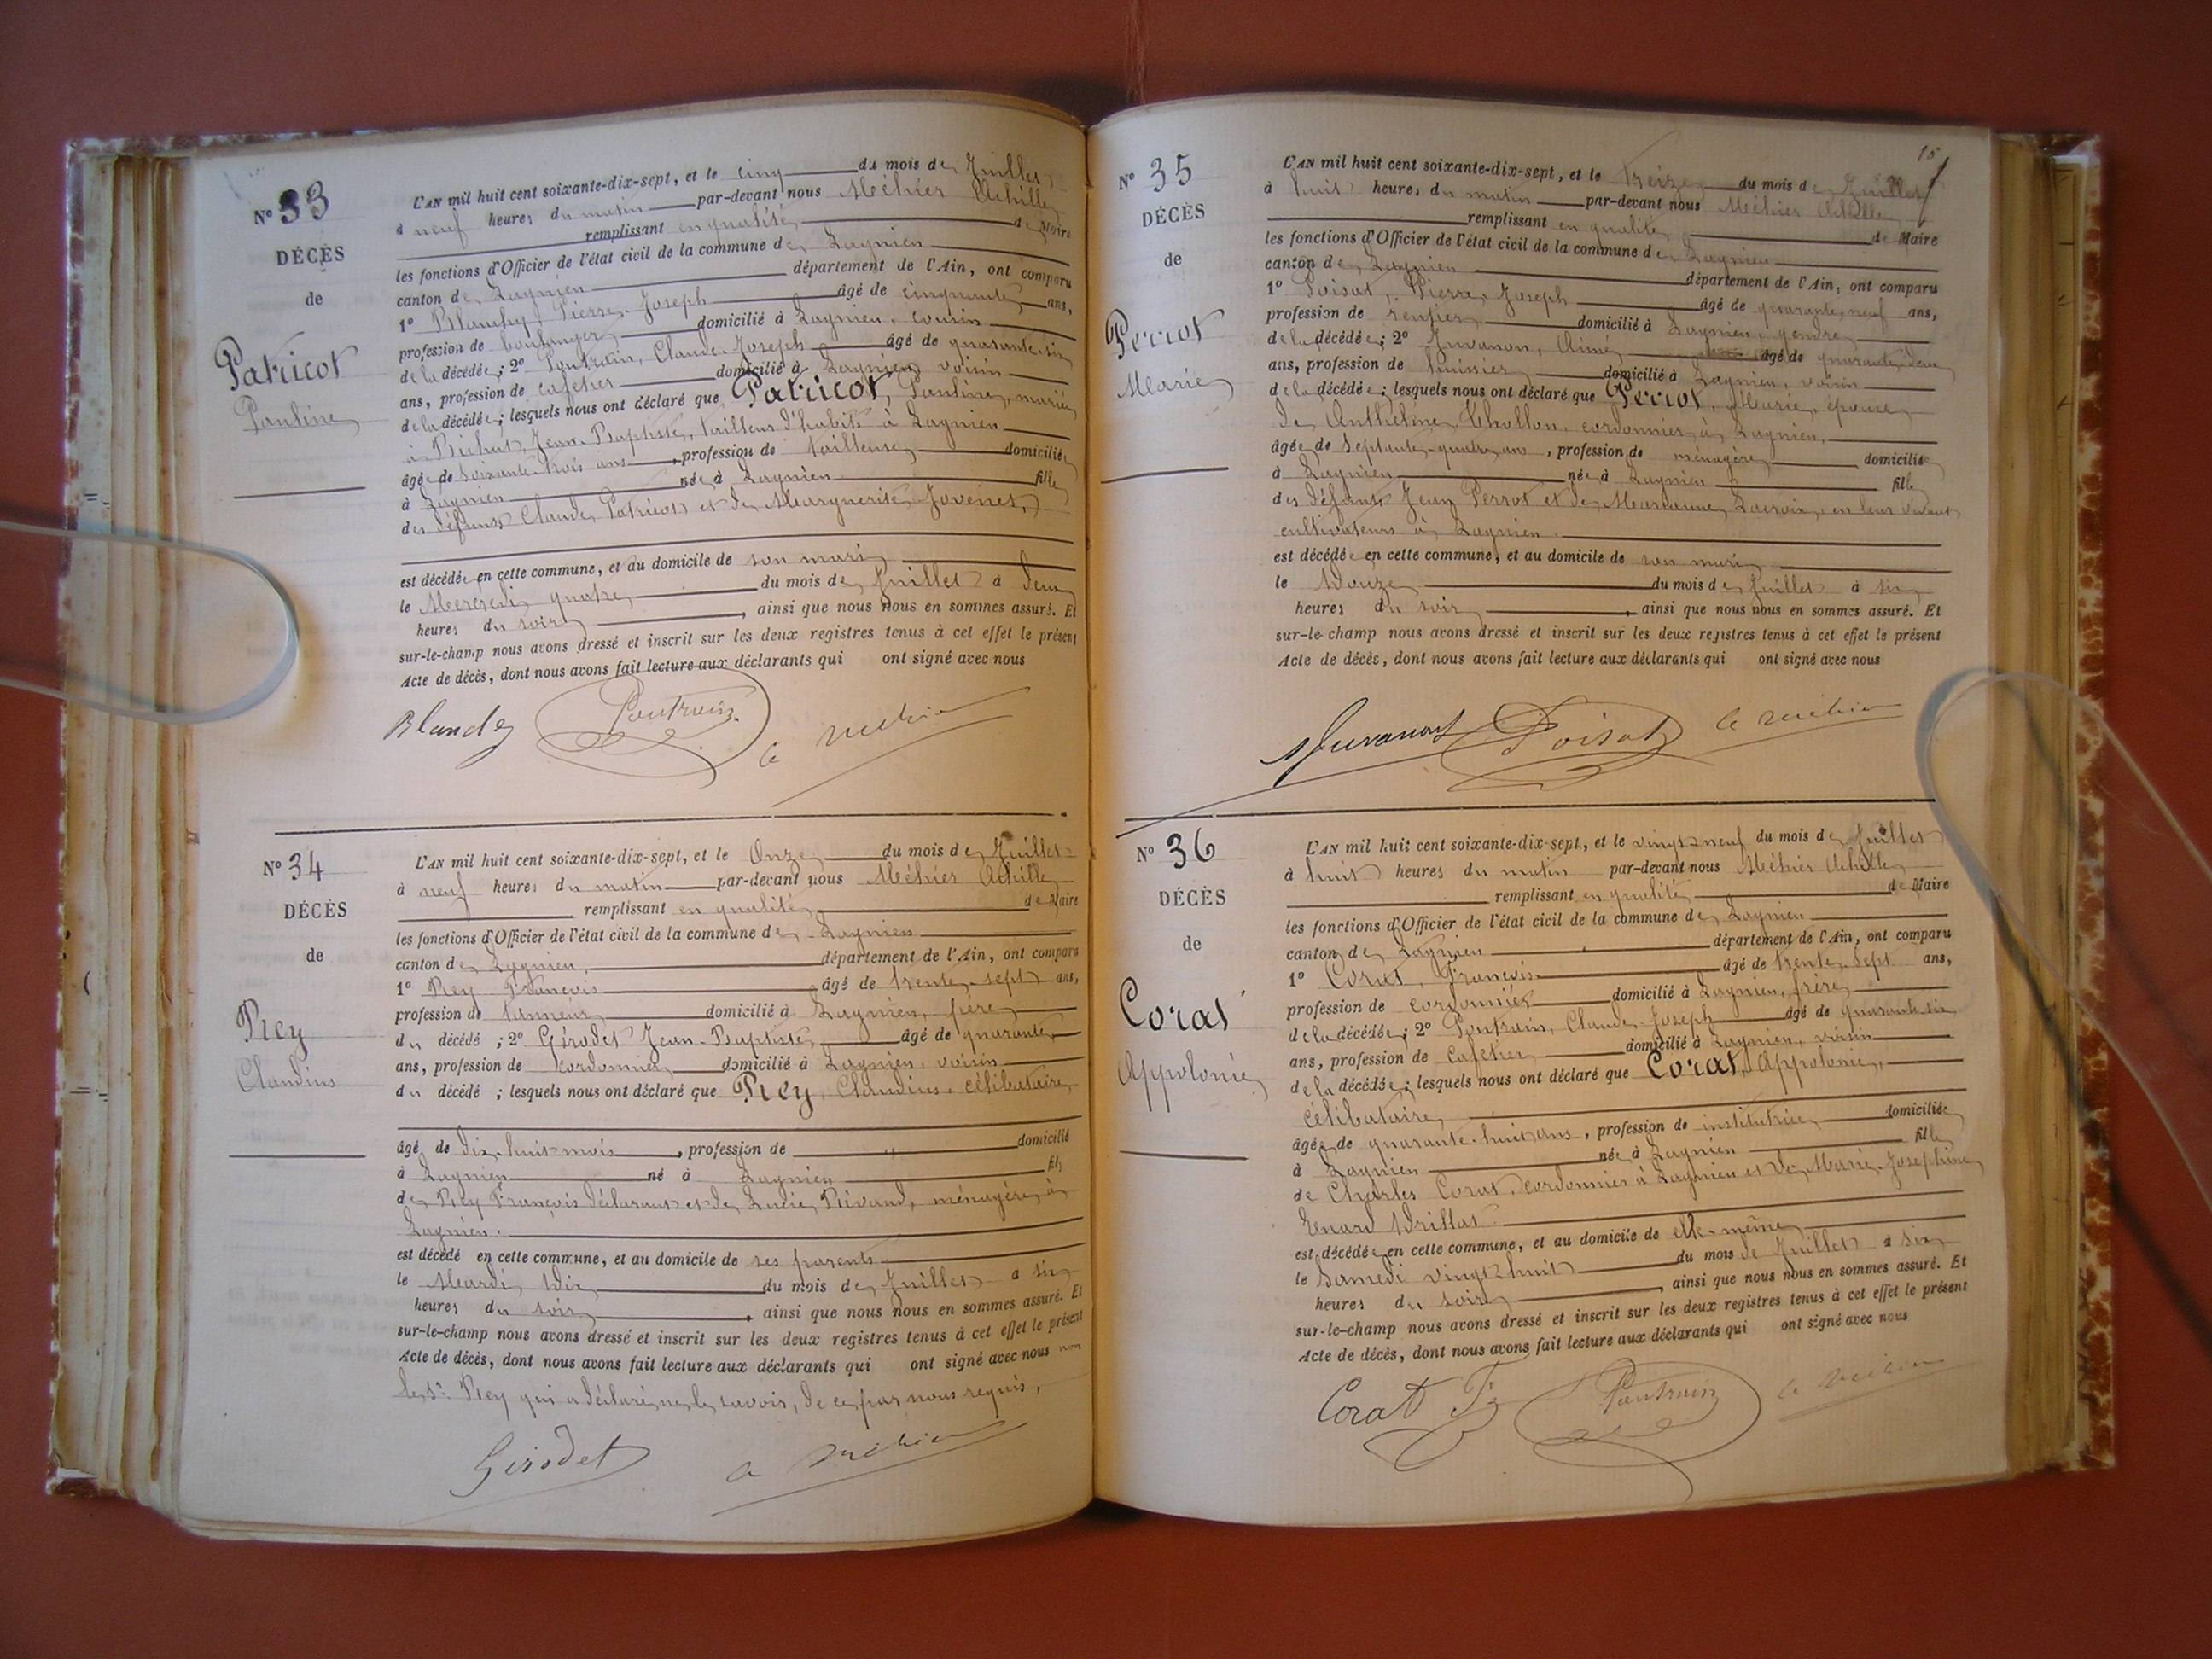 N° 33
DÉCÈS
de
Patricot
Pauline
L'AN mil huit cent soixante-dix-sept, et le cinq du mois de Juillet
à neuf heures du matin par-devant nous Méhier Achille
remplissant en qualité de Maire
les fonctions d'Officier de l'état civil de la commune de Lagnieu
canton de Lagnieu département de l'Ain, ont comparu
1° Blanchy, Pierre-Joseph âgé de cinquante ans,
profession de boulanger domicilié à Lagnieu, cousin
de la décédée; 2° Poutrain, Claude-Joseph âgé de quarante-six
ans, profession de cafetier domicilié à Lagnieu voisin
de la décédée; lesquels nous ont déclaré que Patricot, Pauline, mariée
à Jean-Baptiste, tailleur d'habits à Lagnieu
âgée de soixante-trois ans, profession de tailleuse domiciliée
à Lagnieu née à Lagnieu fille
des défunts Claude Patricot et de Marguerite Juvenet,
est décédée en cette commune, et au domicile de son mari
le Mercredi quatre du mois de Juillet à deux
heures du soir, ainsi que nous nous en sommes assuré. Et
sur-le-champ nous avons dressé et inscrit sur les deux registres tenus à cet effet le présent
Acte de décès, dont nous avons fait lecture aux déclarants qui ont signé avec nous
Poutrain
N° 34
DÉCÈS
de
Rey
Claudius
L'AN mil huit cent soixante-dix-sept, et le Onze du mois de Juillet
à neuf heures du matin par-devant nous Méhier Achille
remplissant en qualité de Maire
les fonctions d'Officier de l'état civil de la commune de Lagnieu
canton de Lagnieu département de l'Ain, ont comparu
1° Rey François âgé de trente-sept ans,
profession de tanneur domicilié à Lagnieu, père
du décédé; 2° Gérodet Jean-Baptiste âgé de quarante
ans, profession de cordonnier domicilié à Lagnieu, voisin
du décédé; lesquels nous ont déclaré que Rey, Claudius, célibataire
âgé de dix-huit mois, profession de " domicilié
à Lagnieu né à Lagnieu fils
de Rey François déclarant et de Lucie Rivaud, ménagère à
Lagnieu.
est décédé en cette commune, et au domicile de ses parents
le Mardi dix du mois de Juillet à six
heures du soir, ainsi que nous nous en sommes assuré. Et
sur-le-champ nous avons dressé et inscrit sur les deux registres tenus à cet effet le présent
Acte de décès, dont nous avons fait lecture aux déclarants qui ont signé avec nous non
le Sr Rey qui a déclaré ne le savoir, de ce par nous requis.
Girodet
15
N° 35
DÉCÈS
de
Perrot
Marie
L'AN mil huit cent soixante-dix-sept, et le treize du mois de Juillet
à huit heures du matin par-devant nous Méhier Achille
remplissant en qualité de Maire
les fonctions d'Officier de l'état civil de la commune de Lagnieu
canton de Lagnieu département de l'Ain, ont comparu
1° Poisat, Pierre Joseph âgé de quarante neuf ans,
profession de rentier domicilié à Lagnieu, gendre
de la décédée; 2° Juvanon, Aimé âgé de quarante deux
ans, profession de huissier domicilié à Lagnieu, voisin
de la décédée; lesquels nous ont déclaré que Perrot, Marie, épouse
de Anthelme Chollon, cordonnier à Lagnieu,
âgée de septante-quatre ans, profession de ménagère domiciliée
à Lagnieu née à Lagnieu fille
des défunts Jean Perrot et de Marianne Lacroix, en leur vivant
cultivateurs à Lagnieu.
est décédée en cette commune, et au domicile de son mari
le Douze du mois de Juillet à six
heures du soir, ainsi que nous nous en sommes assuré. Et
sur-le-champ nous avons dressé et inscrit sur les deux registres tenus à cet effet le présent
Acte de décès, dont nous avons fait lecture aux déclarants qui ont signé avec nous
Juvanon Poisat
N° 36
DÉCÈS
de
Corat
Appolonie
L'AN mil huit cent soixante-dix-sept, et le vingt-neuf du mois de Juillet
à huit heures du matin par-devant nous Méhier Achille
remplissant en qualité de Maire
les fonctions d'Officier de l'état civil de la commune de Lagnieu
canton de Lagnieu département de l'Ain, ont comparu
1° Corat, François âgé de trente-sept ans,
profession de cordonnier domicilié à Lagnieu, frère
de la décédée; 2° Poutrain, Claude Joseph âgé de quarante-six
ans, profession de Cafetier domicilié à Lagnieu, voisin
de la décédée; lesquels nous ont déclaré que Corat, Appolonie,
célibataire,
âgée de quarante-huit ans, profession de institutrice domiciliée
à Lagnieu née à Lagnieu fille
de Charles Corat, cordonnier à Lagnieu et de Marie-Josephine
est décédée en cette commune, et au domicile de elle-même
le Samedi vingt-huit du mois de Juillet à six
heures du soir, ainsi que nous nous en sommes assuré. Et
sur-le-champ nous avons dressé et inscrit sur les deux registres tenus à cet effet le présent
Acte de décès, dont nous avons fait lecture aux déclarants qui ont signé avec nous
Corat F. Poutrain